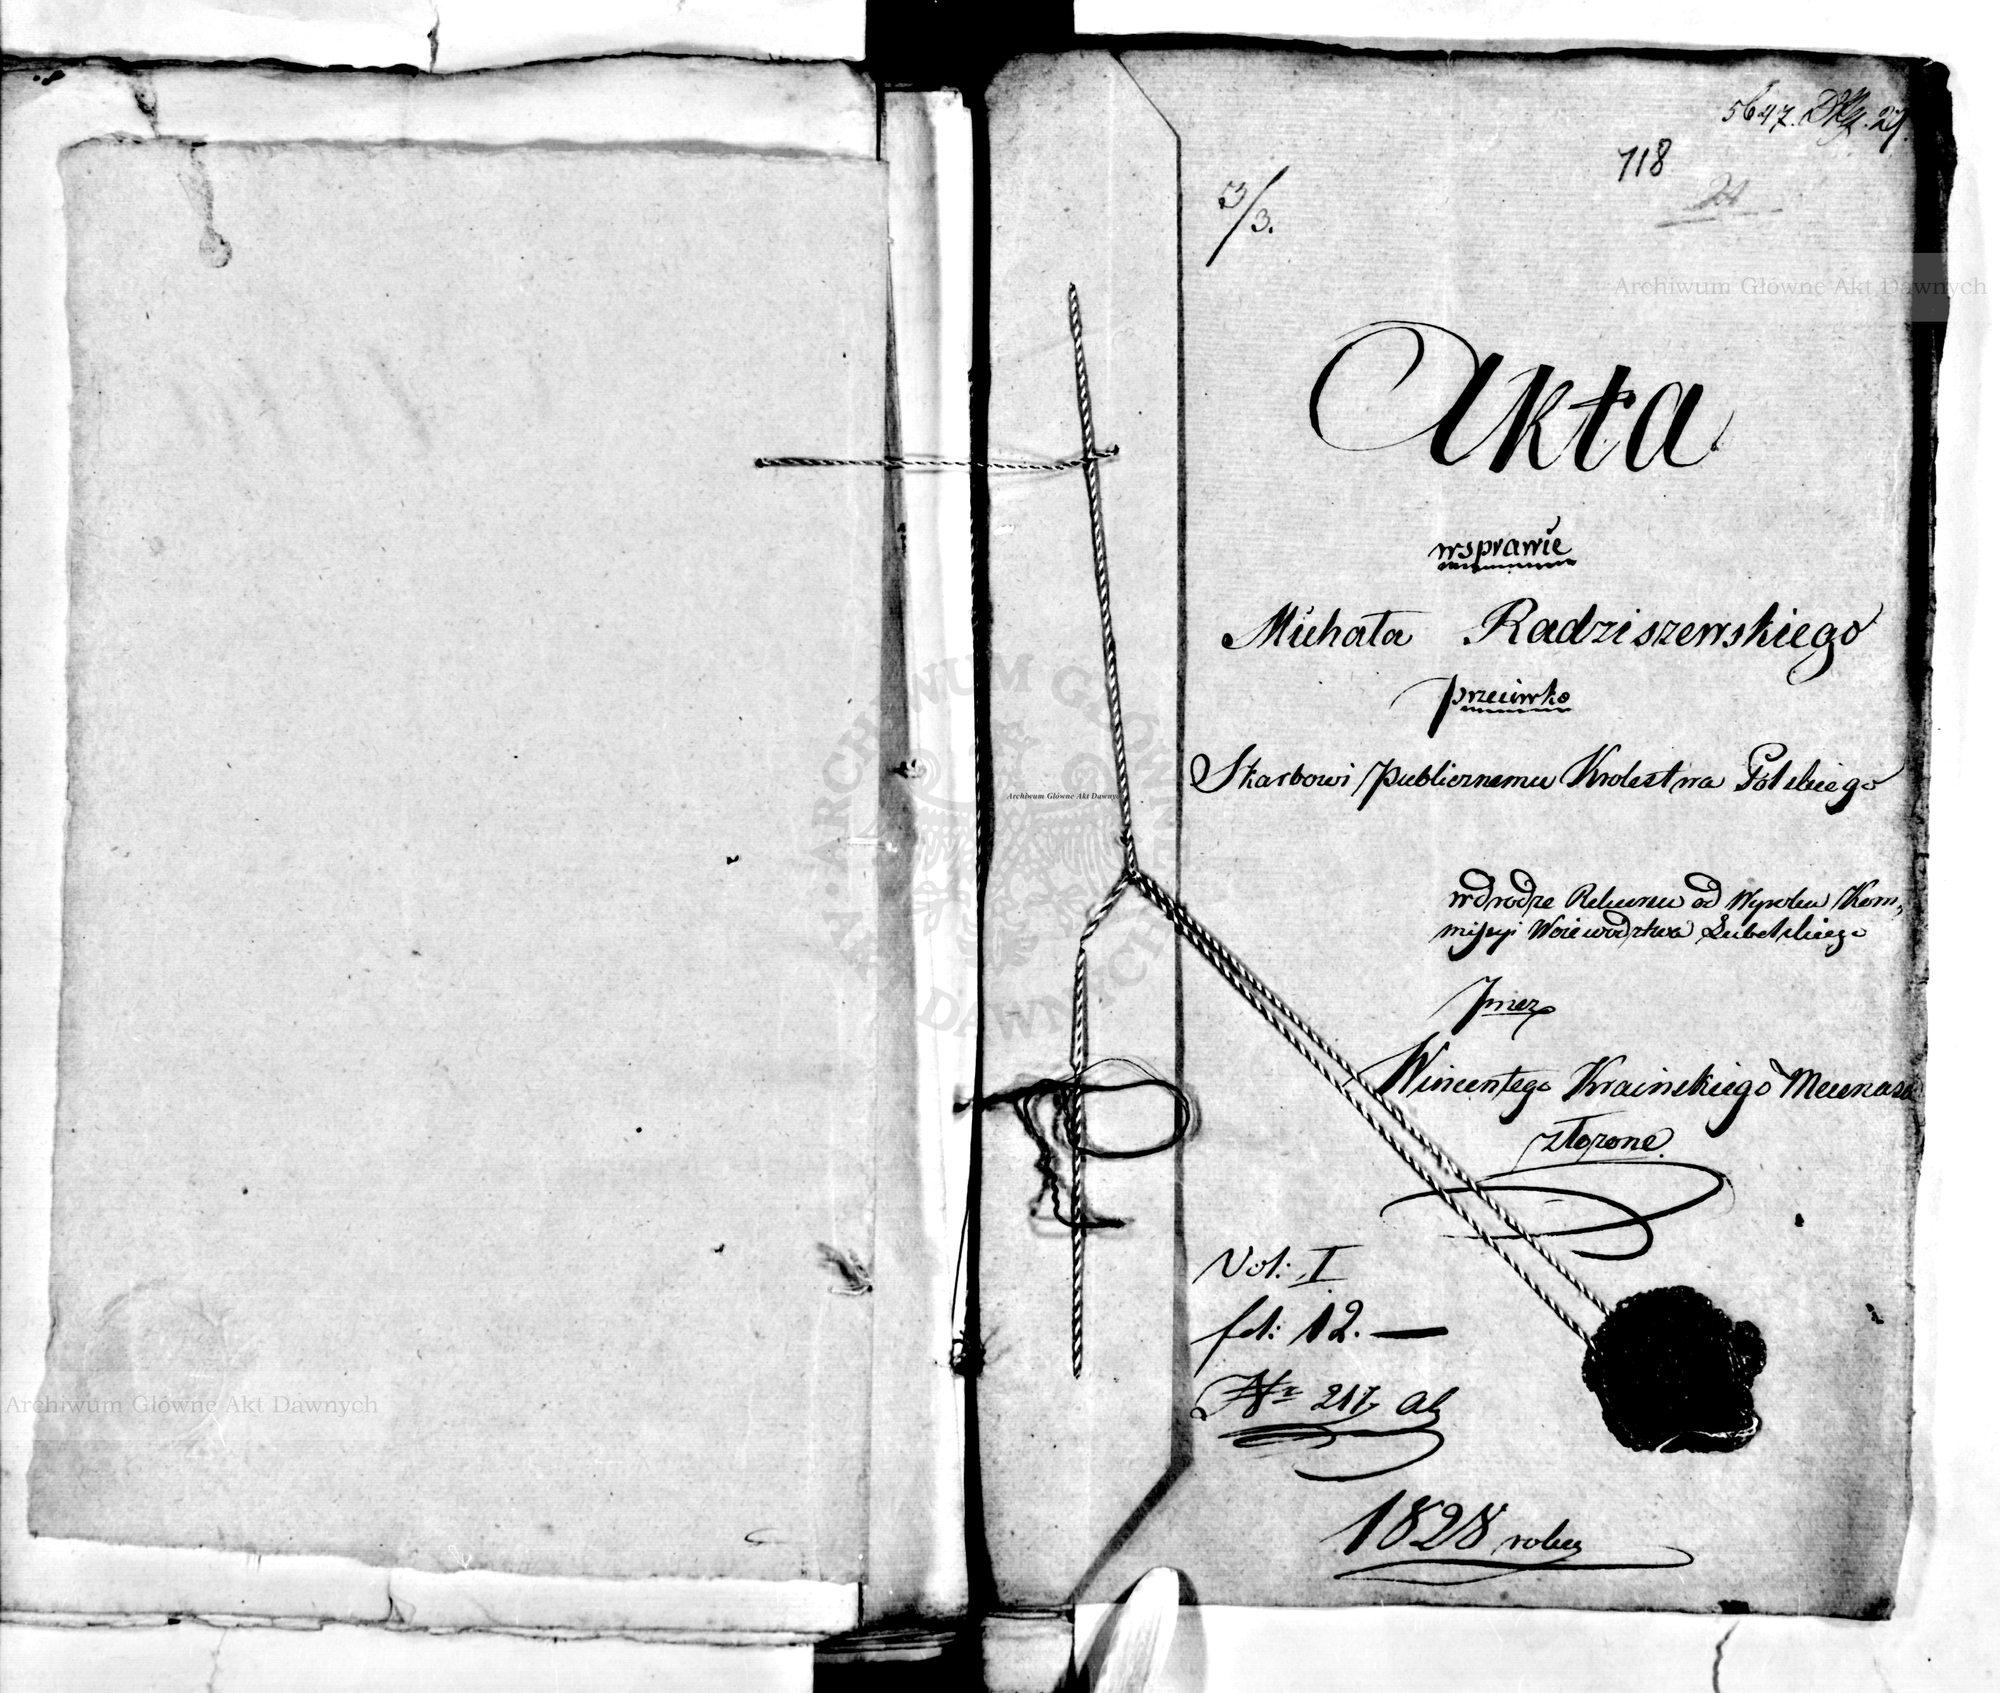 5647.
718
3/3.
Akta
wsprawie
Michała Radziszewskiego
przeciwko
Skarbowi Publicznemu Krolestwa Polskiego
wdrodze Rekursu od Wyroku Kom„
missyi Woiewodztwa Lubelskiego
Przez
Wincentego Krainskiego Mecenasa
złozone.
Vol: I
fol: 12. —
Nr 217
1828 roku
Archiwum Główne Akt Dawnych
Archiwum Główne Akt Dawnych
Archiwum Główne Akt Dawnych
ARCHIWUM GŁÓWNE AKT DAWNYCH